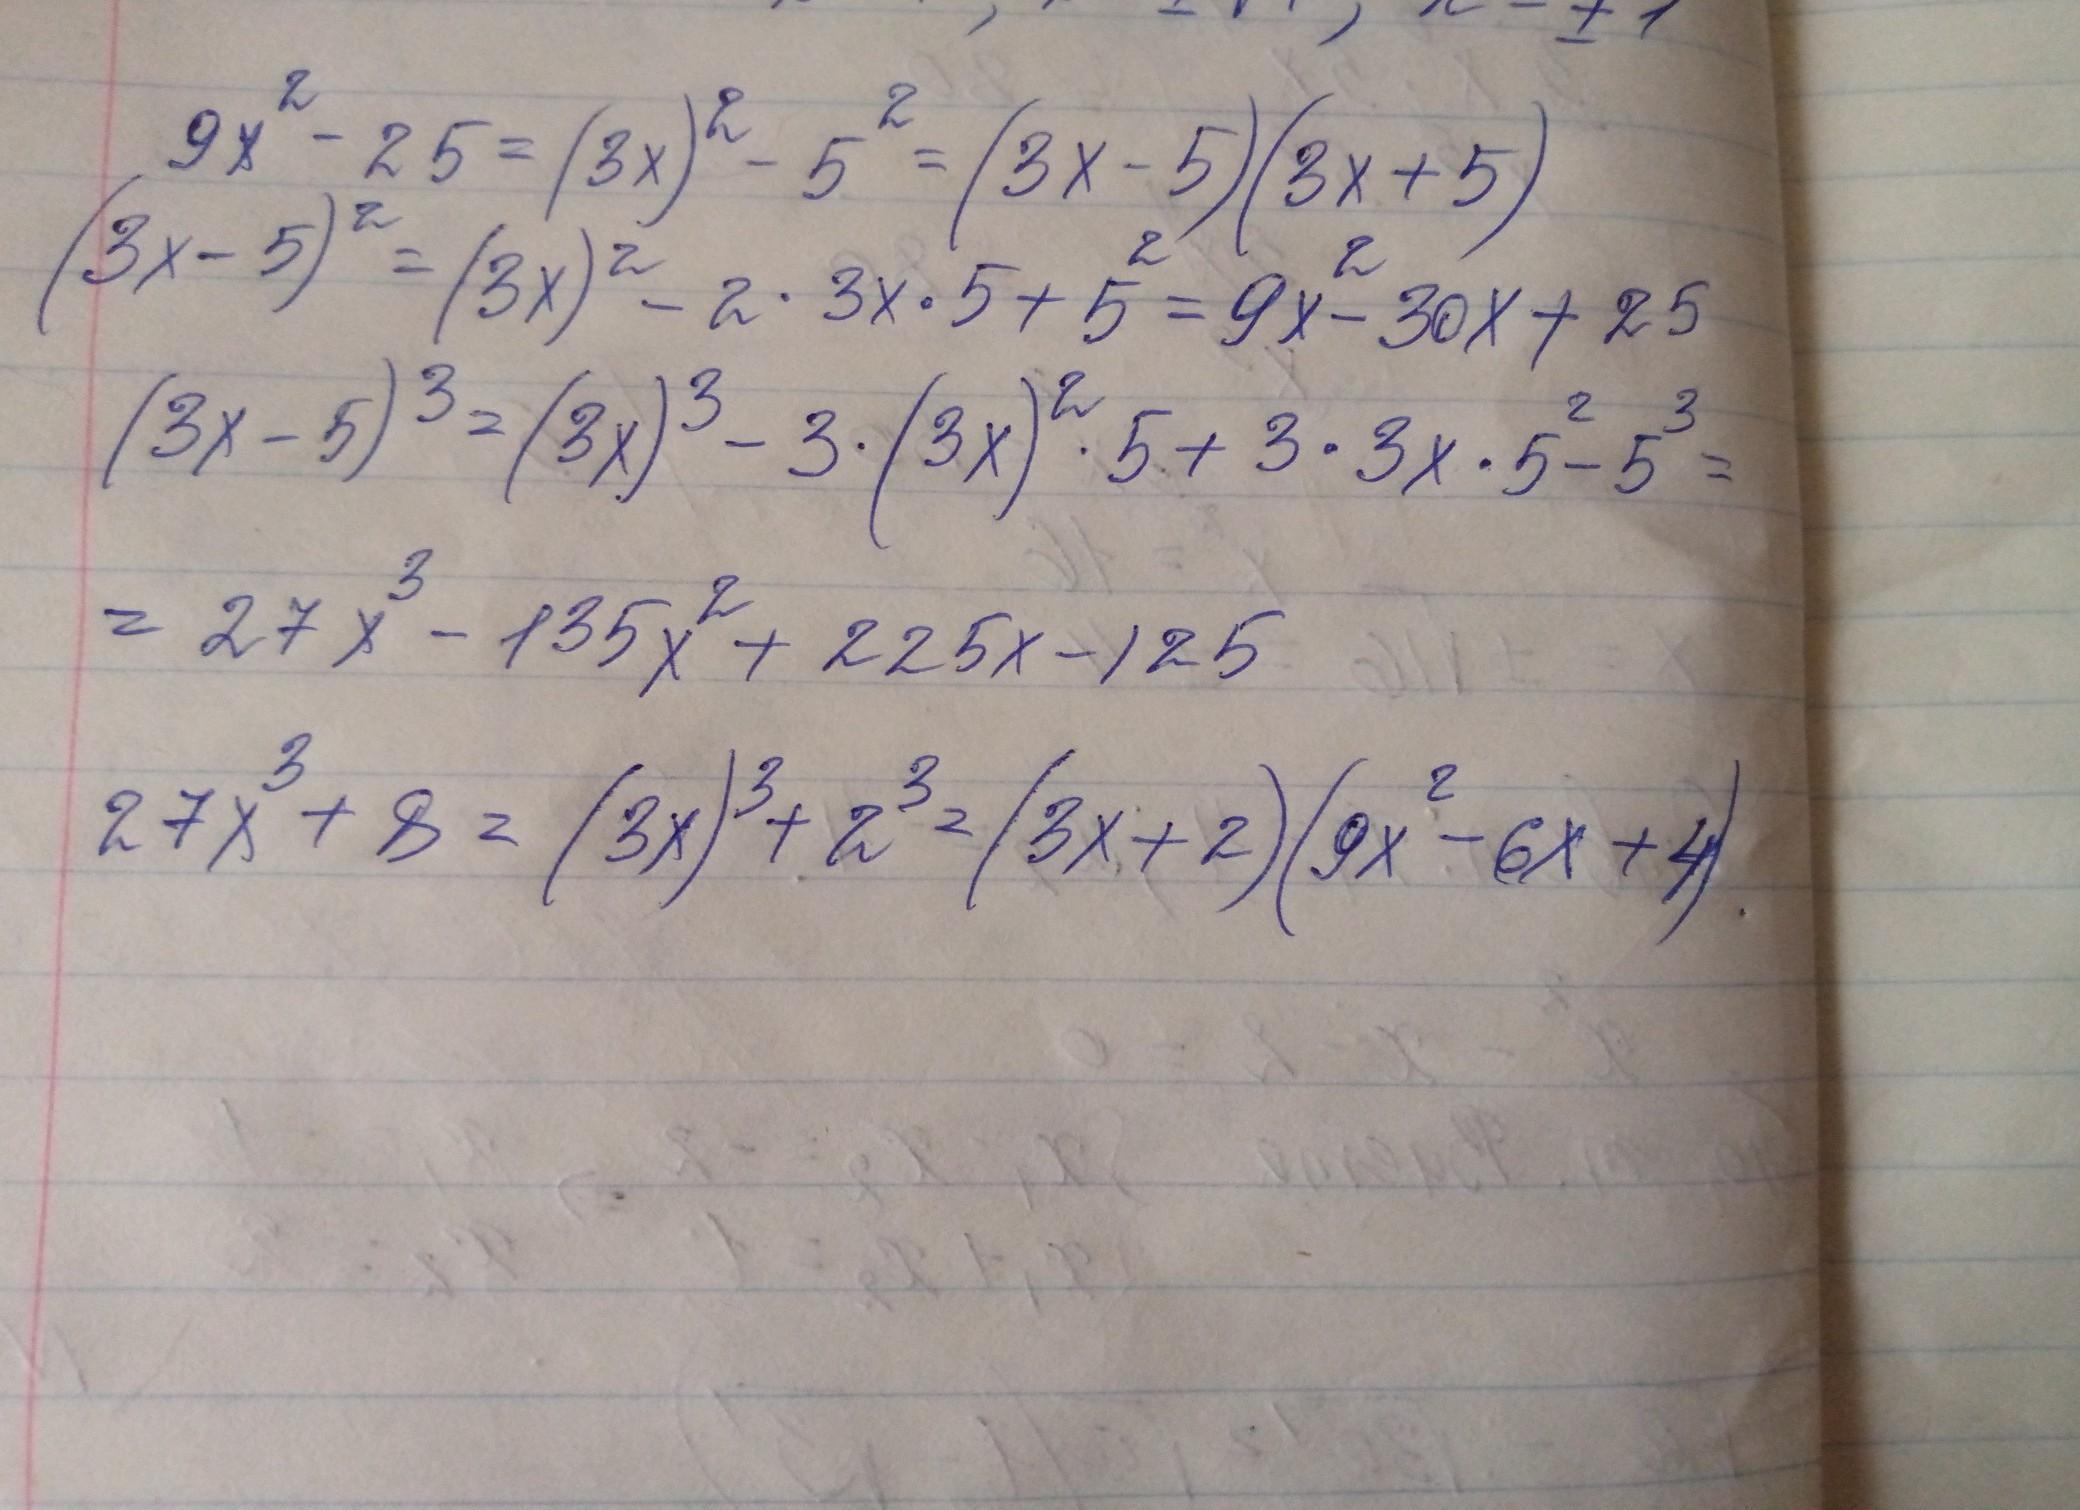 x = ±1
9x² - 25 = (3x)² - 5² = (3x - 5)(3x + 5)
(3x - 5)² = (3x)² - 2 · 3x · 5 + 5² = 9x² - 30x + 25
(3x - 5)³ = (3x)³ - 3 · (3x)² · 5 + 3 · 3x · 5² - 5³ =
= 27x³ - 135x² + 225x - 125
27x³ + 8 = (3x)³ + 2³ = (3x + 2)(9x² - 6x + 4).